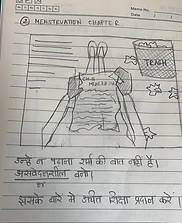 Memo No.
Date / /
② MENSTRUATION CHAPTER
TRASH
उन्हें न पढ़ाना शर्म की बात नहीं है।
असंवेदनशील बनो।
or
इसके बारे में उचित शिक्षा प्रदान करें।